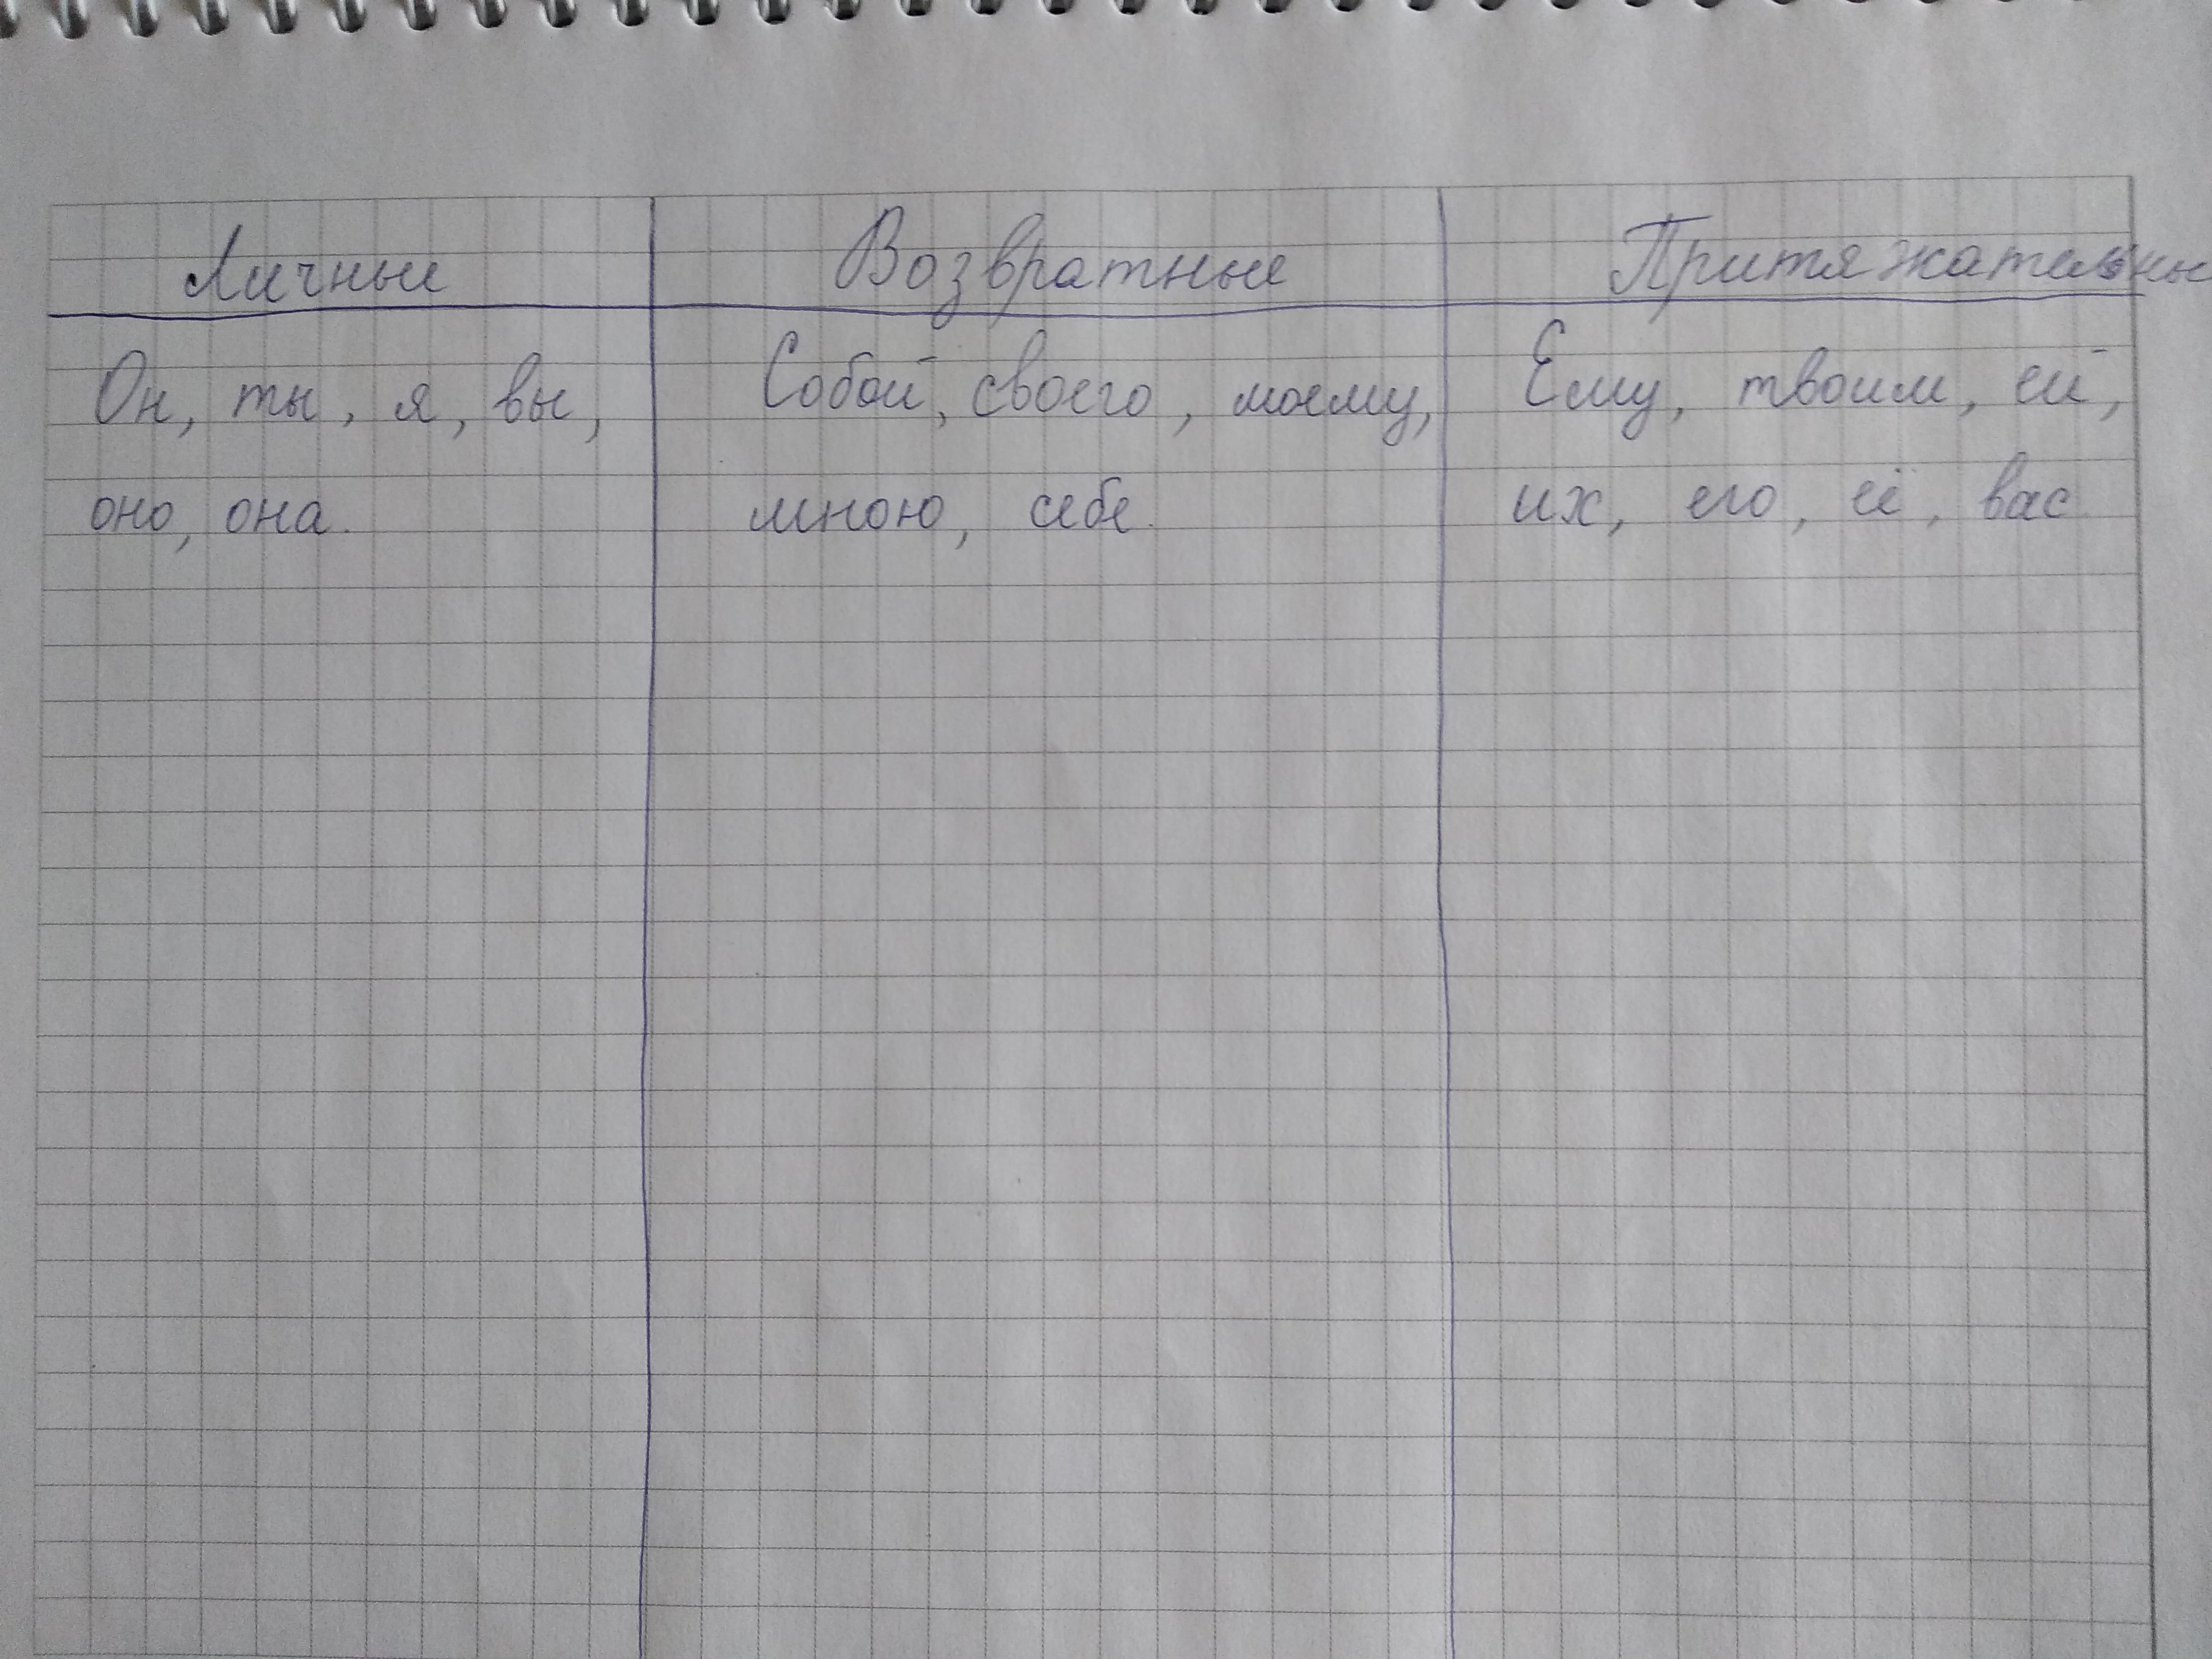 Личные Возвратные Притяжательны
Он, ты, я, вы, Собой, своего, моему, Ему, твоим, ей,
оно, она. мною, себе. их, его, её, вас.